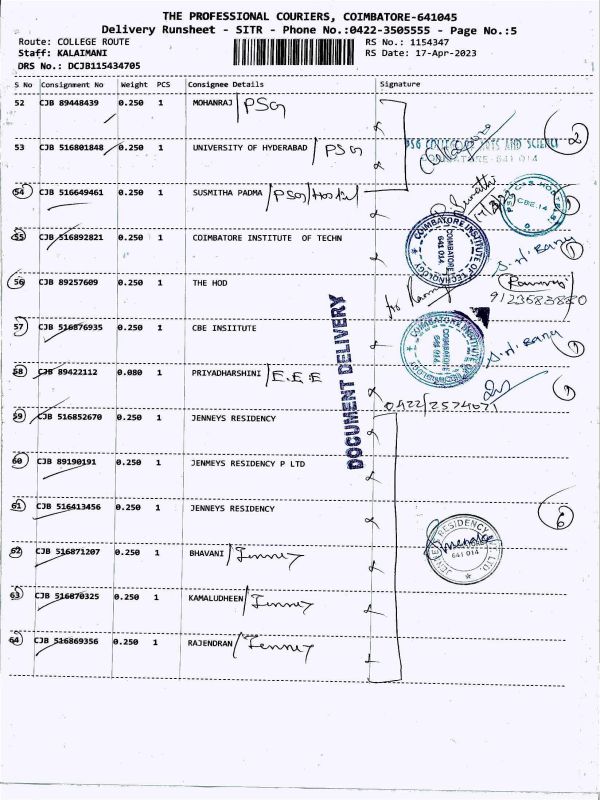 THE PROFESSIONAL COURIERS, COIMBATORE-641045
Delivery Runsheet - SITR - Phone No.:0422-3505555 - Page No.:5
Route: COLLEGE ROUTE RS No.: 1154347
Staff: KALAIMANI RS Date: 17-Apr-2023
DRS No.: DCJB115434705
S No Consignment No Weight PCS Consignee Details Signature
52 CJB 89448439 0.250 1 MOHANRAJ / PSG
53 CJB 516801848 0.250 1 UNIVERSITY OF HYDERABAD / PSG 2
PSG COLLEGE OF ARTS AND SCIENCE
COIMBATORE - 641 014
54 CJB 516649461 0.250 1 SUSMITHA PADMA / PSG/Hostel
CBE.14
55 CJB 516892821 0.250 1 COIMBATORE INSTITUTE OF TECHN
COIMBATORE INSTITUTE OF TECHNOLOGY
COIMBATORE
641 014
S.N. Banu 1
56 CJB 89257609 0.250 1 THE HOD
9123683880
57 CJB 516876935 0.250 1 CBE INSIITUTE
COIMBATORE INSTITUTE OF TECHNOLOGY
COIMBATORE
641 014
S.N. Banu 1
DOCUMENT DELIVERY
58 CJB 89422112 0.080 1 PRIYADHARSHINI / E.E.E 1
0422/2574071
59 CJB 516852670 0.250 1 JENNEYS RESIDENCY
60 CJB 89190191 0.250 1 JENMEYS RESIDENCY P LTD
61 CJB 516413456 0.250 1 JENNEYS RESIDENCY 6
JENNEYS RESIDENCY PVT. LTD.
641 014
62 CJB 516871207 0.250 1 BHAVANI / Jenney
63 CJB 516870325 0.250 1 KAMALUDHEEN / Jenney
64 CJB 516869356 0.250 1 RAJENDRAN / Jenney